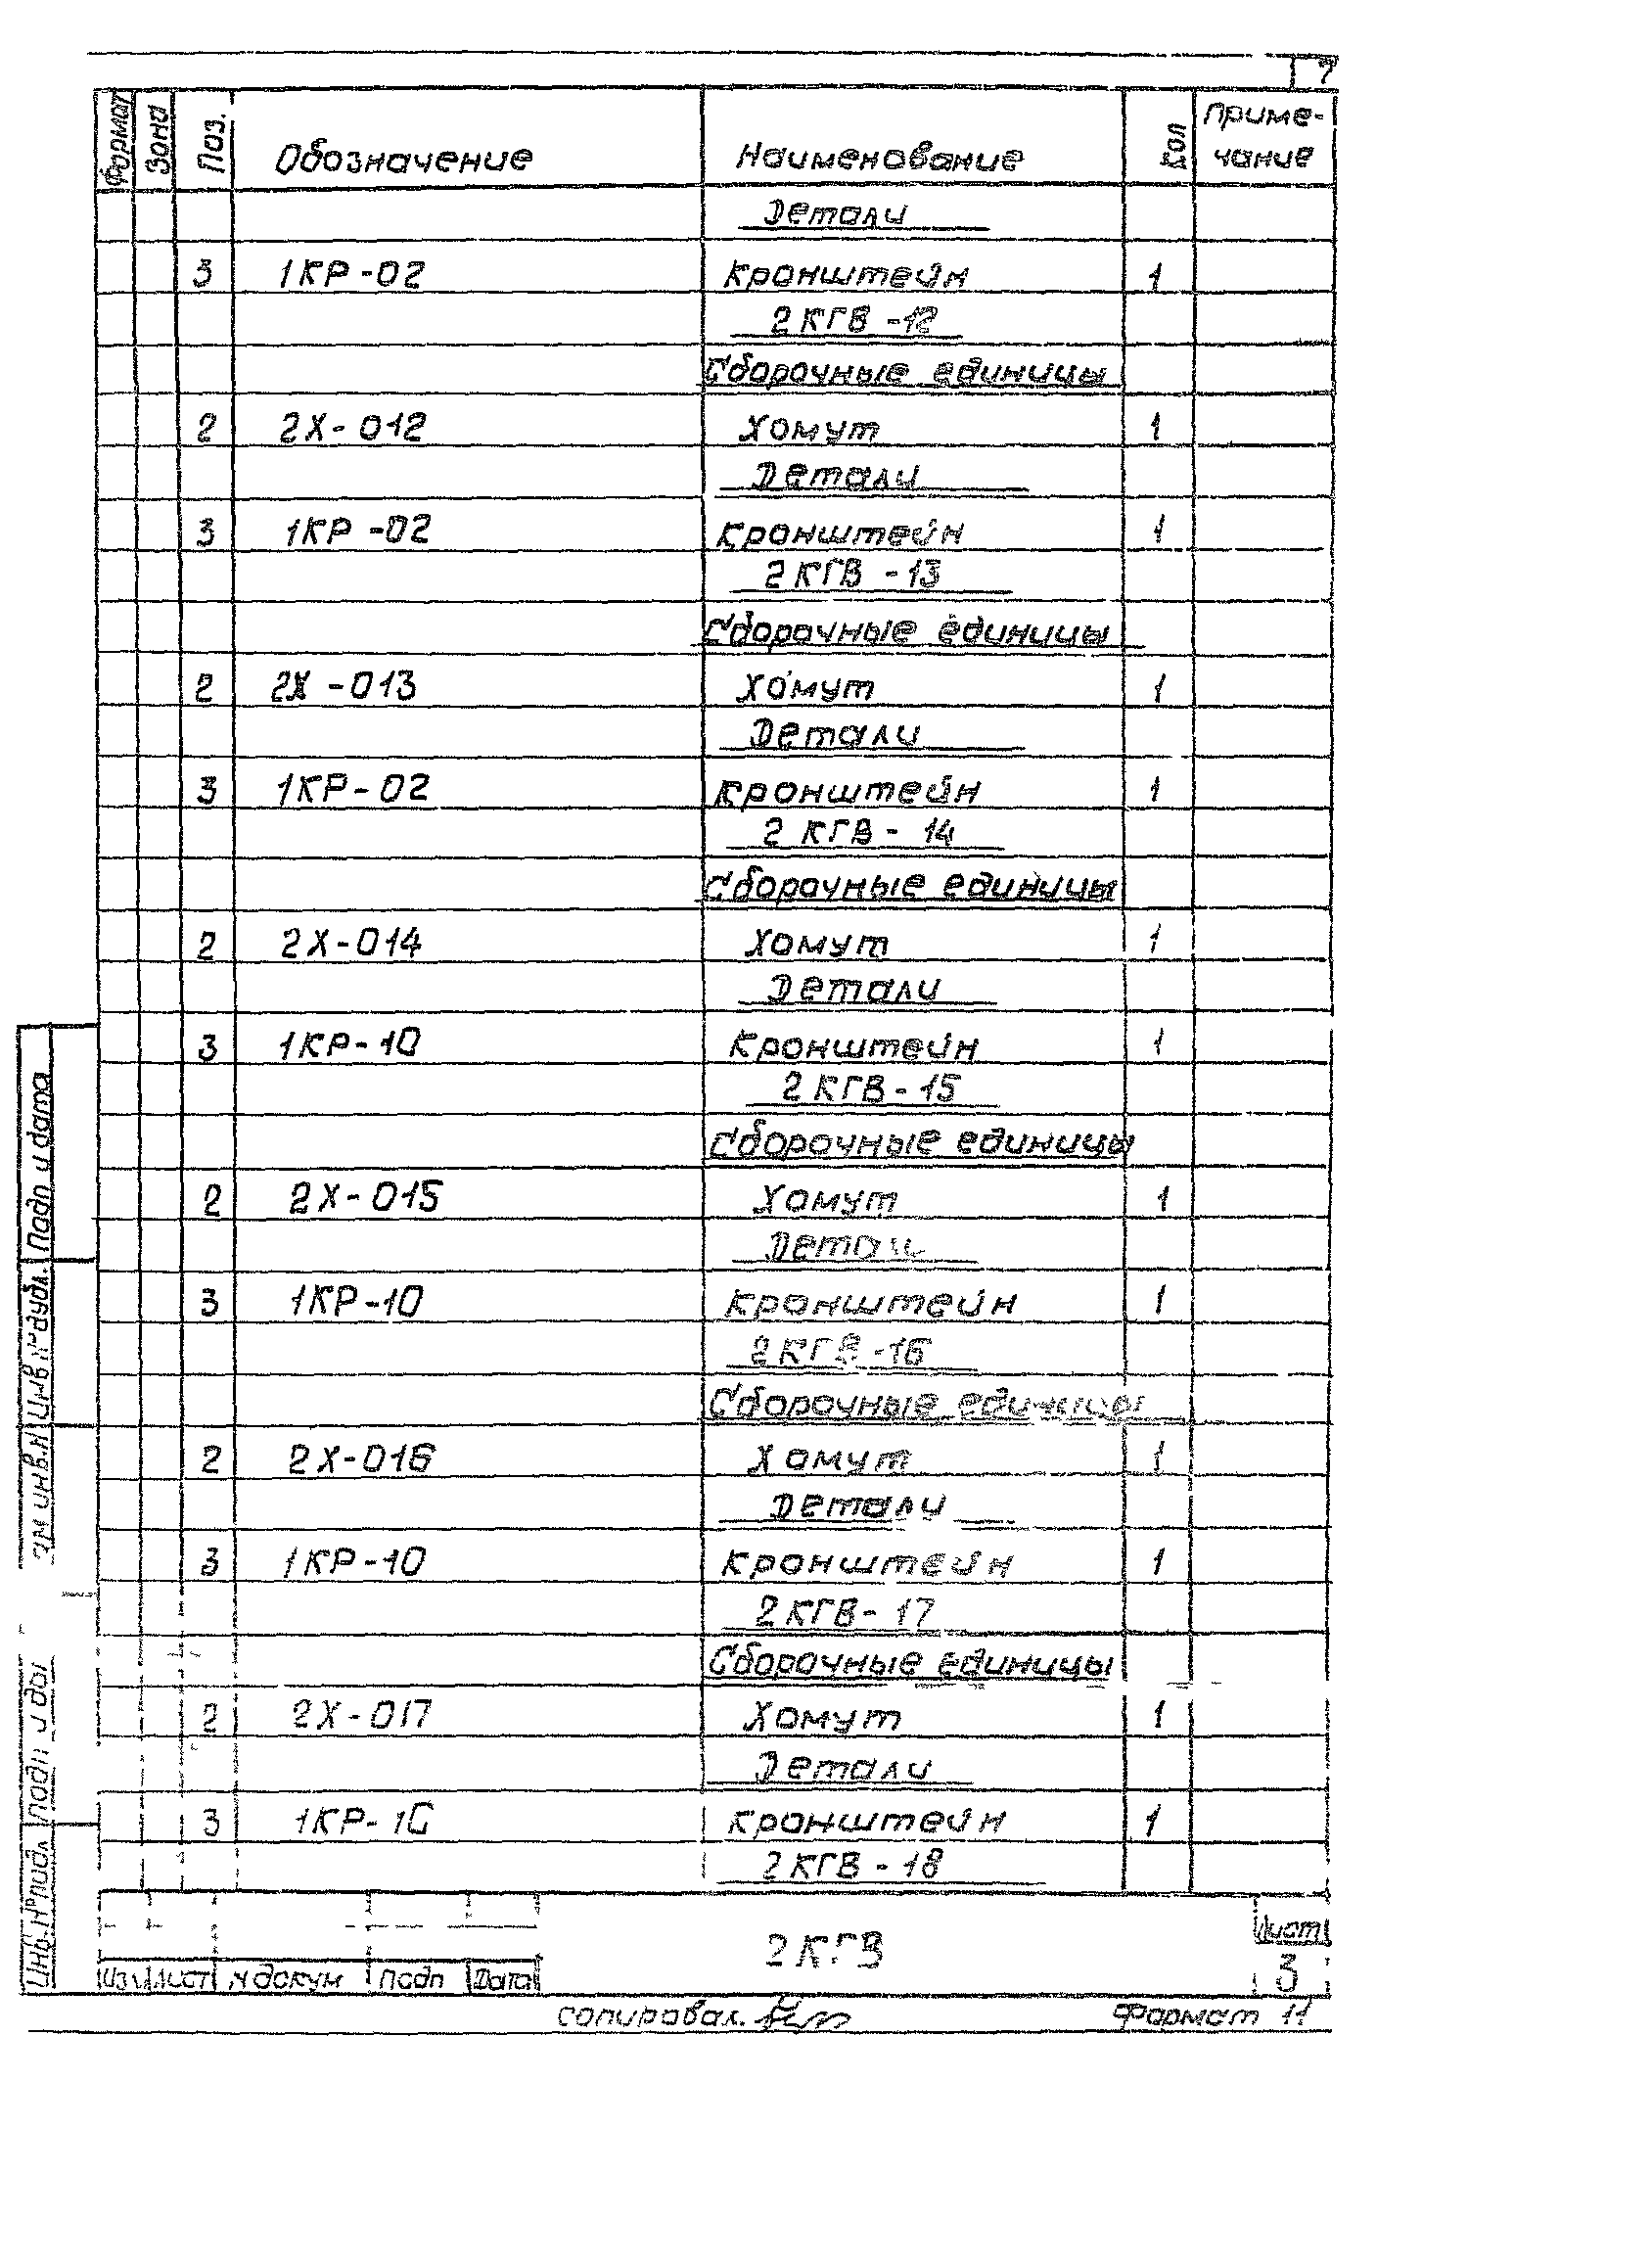 7
Формат Зона Поз. Обозначение Наименование Кол Приме-
чание
Детали
3 1КР-02 Кронштейн 1
2КГВ-12
Сборочные единицы
2 2Х-012 Хомут 1
Детали
3 1КР-02 Кронштейн 1
2КГВ-13
Сборочные единицы
2 2Х-013 Хомут 1
Детали
3 1КР-02 Кронштейн 1
2КГВ-14
Сборочные единицы
2 2Х-014 Хомут 1
Детали
3 1КР-10 Кронштейн 1
2КГВ-15
Сборочные единицы
2 2Х-015 Хомут 1
Детали
3 1КР-10 Кронштейн 1
2КГВ-16
Сборочные единицы
2 2Х-016 Хомут 1
Детали
3 1КР-10 Кронштейн 1
2КГВ-17
Сборочные единицы
2 2Х-017 Хомут 1
Детали
3 1КР-10 Кронштейн 1
2КГВ-18
Подп и дата
Инв № дубл.
инв. №
Подп
Инв. № подл
2КГВ
Лист
3
Изм Лист № докум Подп Дата
Копировал.
Формат 11